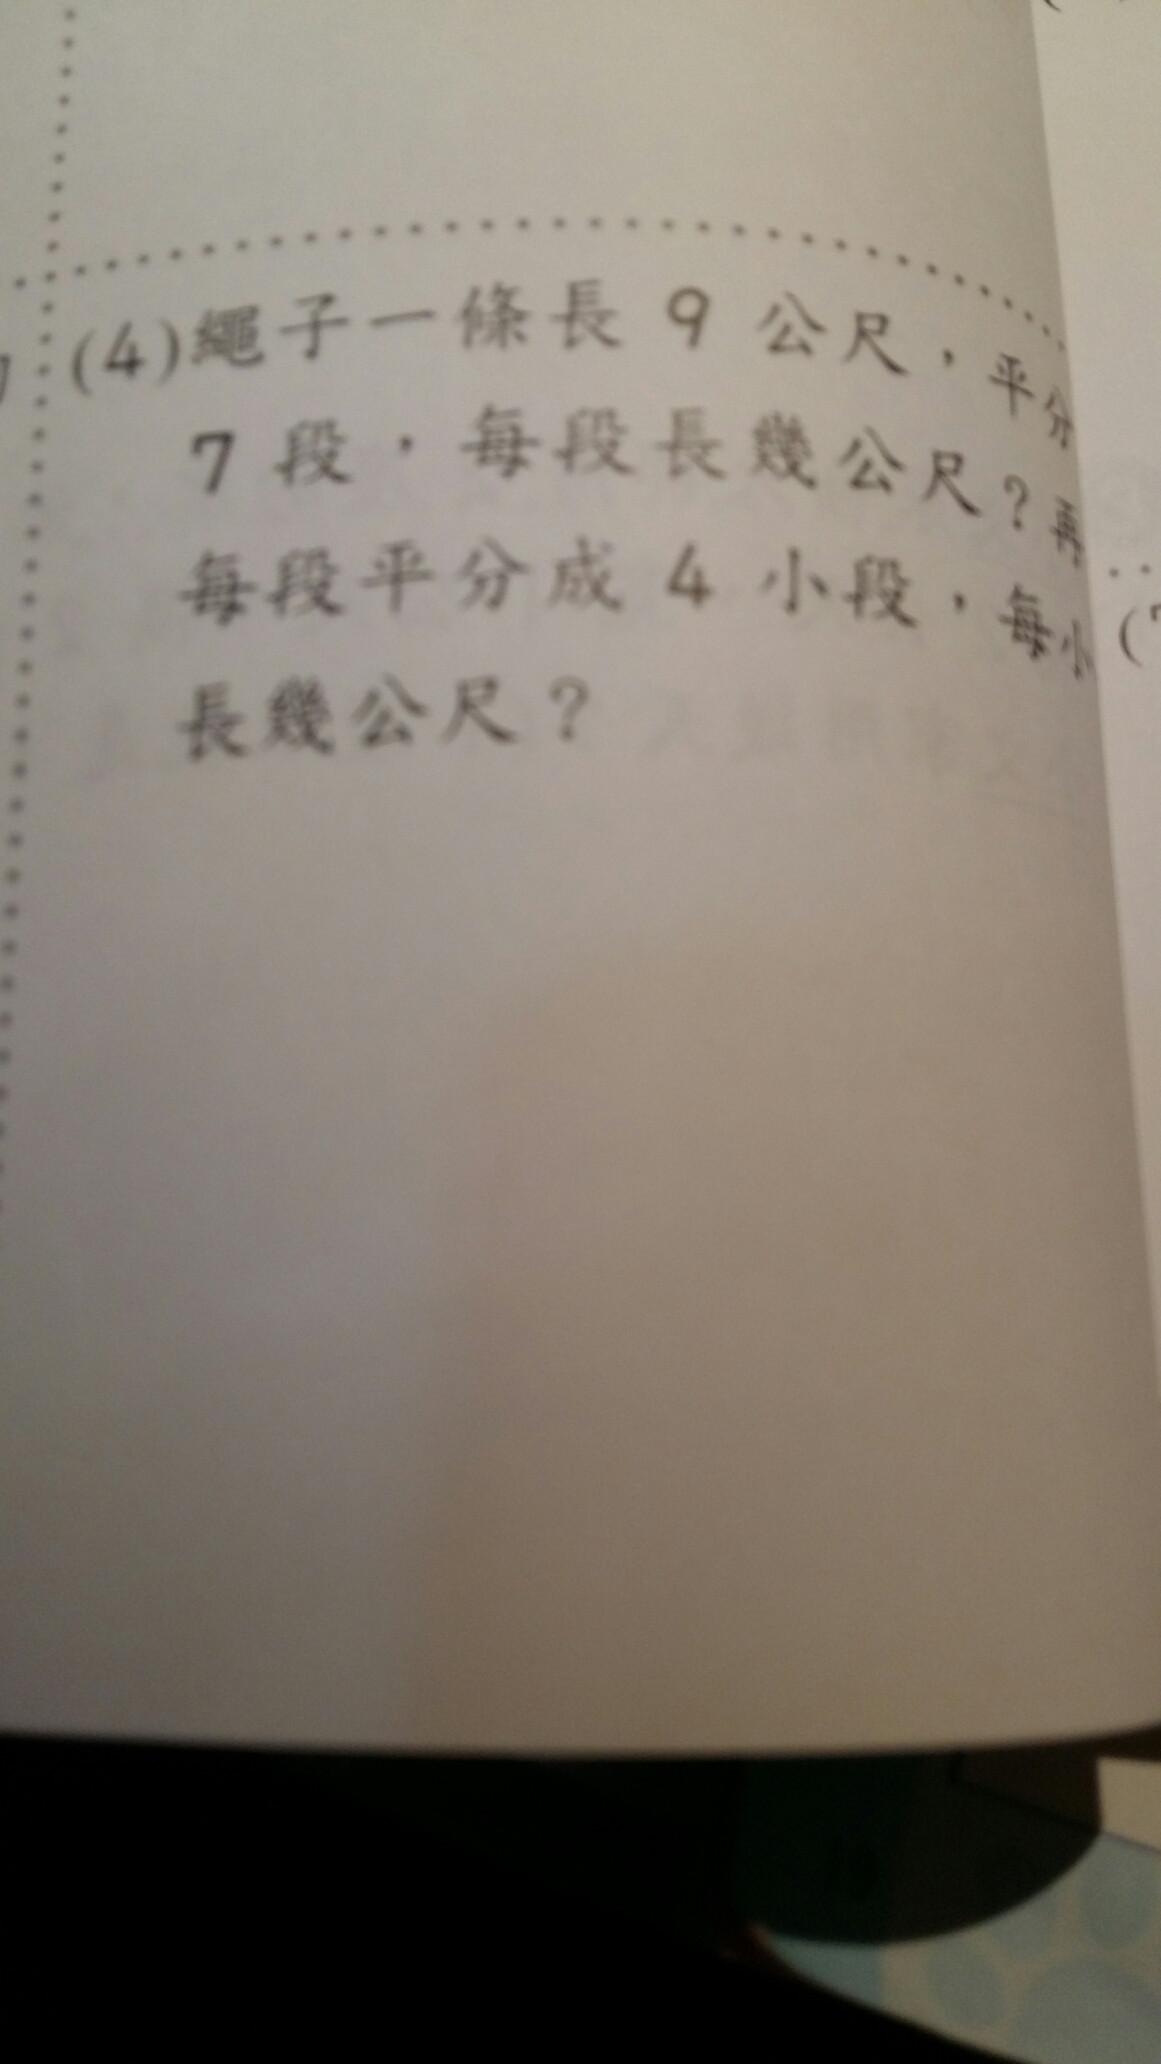 (4)繩子一條長 9 公尺，平分
7 段，每段長幾公尺？再
每段平分成 4 小段，每小
長幾公尺？